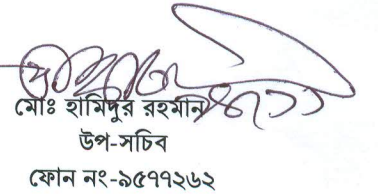 মোঃ হামিদুর রহমান
উপ-সচিব
ফোন নং-৯৫৭৭২৬২